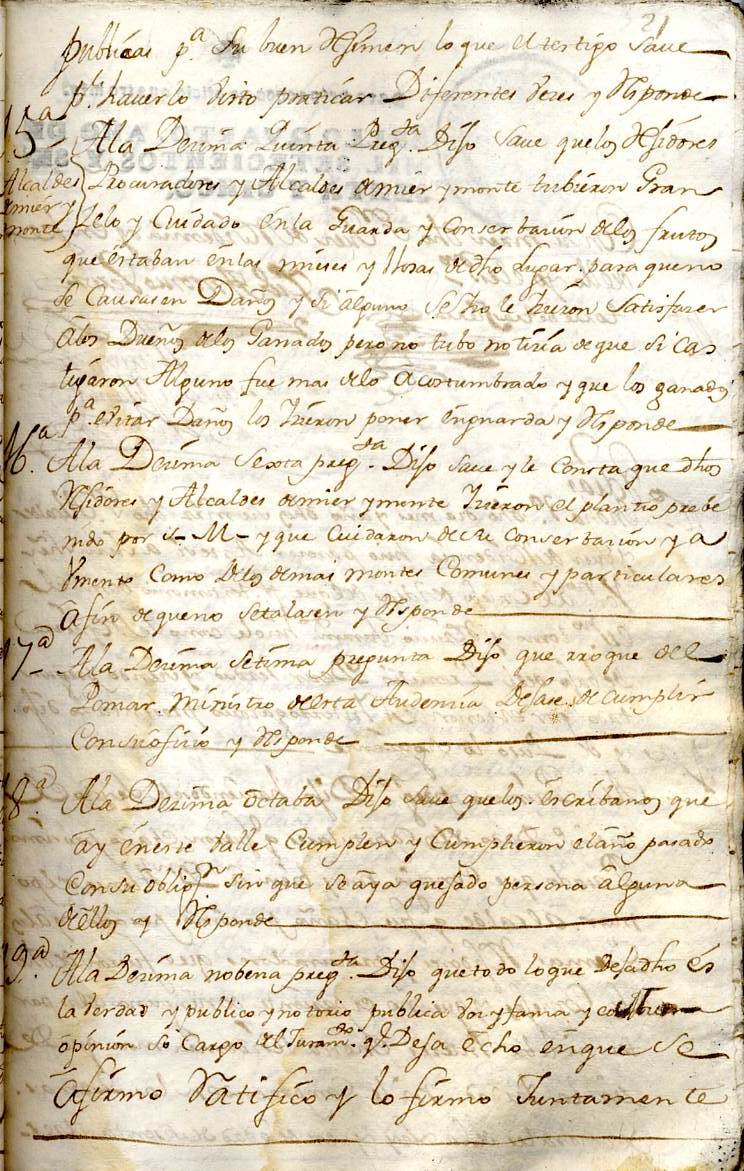 21
publicas p.ª su buen Rejimen lo que el testigo save
p.r haverlo visto praticar Diferentes vezes y Responde
15ª Ala Dezima Quinta Preg.ta Dijo save quelos Rejidores
Alcaldes
demier y
monte
Procuradores y Alcaldes demier ymonte tubieron Gran
Zelo y Cuidado enla Guarda y conserbazion delos frutos
que estaban enlas mieses y de dho Lugar. para queno
se Causasen Daños y si alguno se hizo le hizieron Satisfazer
alos Dueños delos Ganados pero no tubo notizia de que si Cas
tigaron Alguno fue mas delo Acostumbrado y que los ganados
p.ª evitar Daños los hizieron poner enguarda y Responde
16ª. Ala Dezima Sexta preg.ta Dijo save y le Consta que dhos
Rejidores y Alcaldes demier ymonte hizieron el plantio prebe
nido por S. M. y que Cuidaron de su Conserbazion y a
Umento Como Delos demas montes Comunes y particulares
Afin de queno setalasen y Responde
17ª Ala Dezima setima pregunta Dijo que rroque del
Pomar. Ministro de esta Audenzia Dejase de cumplir
Consuofizio y Responde
18ª Ala Dezima octaba Dijo save quelos. escribanos que
ay eneste Valle Cumplen y Cumplieron el año pasado
Consu oblig.on sin que se aya quejado persona alguna
dellos y Responde
19ª. Ala Dezima nobena preg.ta Dijo quetodo loque Deja dho es
la Verdad y publico y notorio publica voz y fama y comun
opinion so Cargo del Juram.to q.e Deja echo enque se
Afirmo Ratifico y lo firmo Juntamente